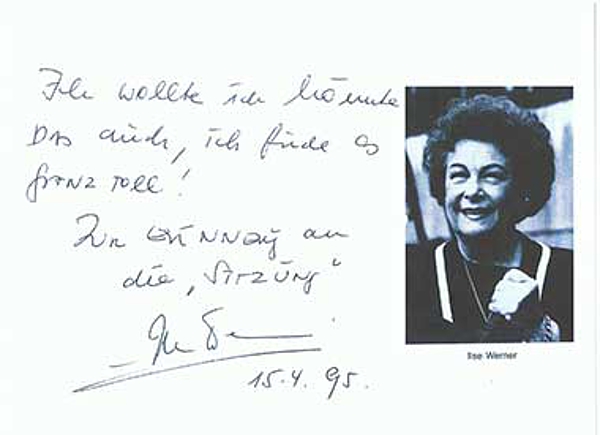 Ich wollte ich könnte
DAS auch, ich finde es
GANZ TOLL!
Zur ERINNERUNG an
die „SITZUNG"
Ilse Werner
15.4.95.
Ilse Werner